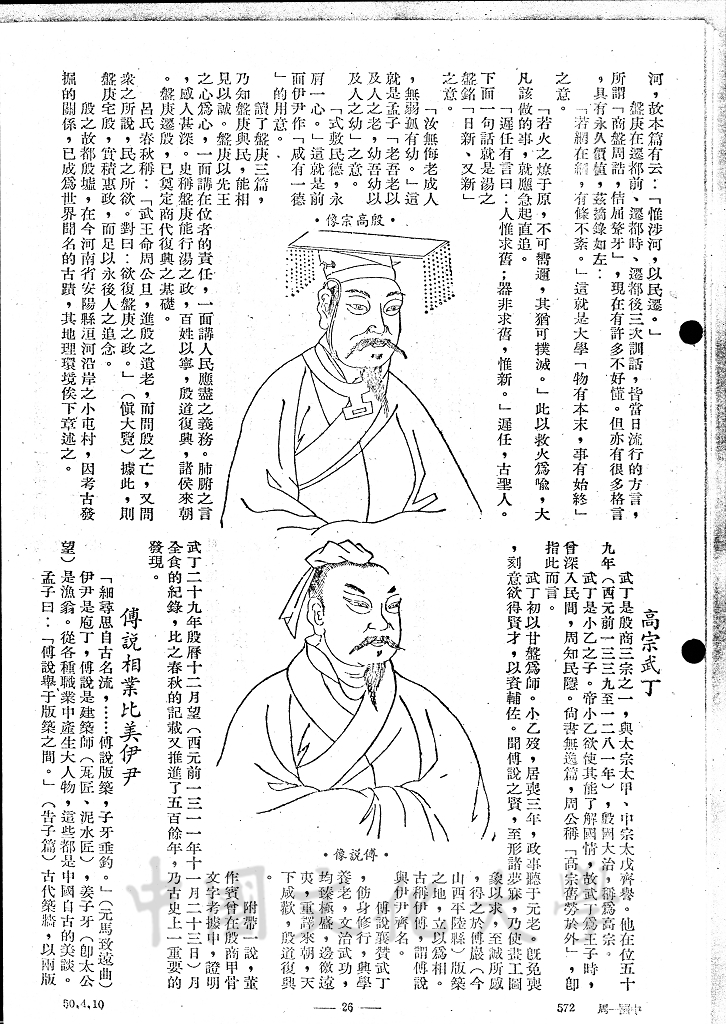 河，故本篇有云：「惟涉河，以民遷。」
盤庚在遷都前、遷都時、遷都後三次訓話，皆當日流行的方言，
所謂「商盤周誥，佶屈聱牙」，現在有許多不好懂。但亦有很多格言
，具有永久價值，茲摘錄如左：
「若網在綱，有條不紊。」這就是大學「物有本末，事有始終」
之意。
「若火之燎于原，不可嚮邇，其猶可撲滅。」此以救火爲喩，大
凡該做的事，就應急起直追。
「遲任有言曰：人惟求舊；器非求舊，惟新。」遲任，古聖人。
下面一句話就是湯之
盤銘「日新、又新」
之意。
「汝無侮老成人
，無弱孤有幼。」這
就是孟子「老吾老以
及人之老，幼吾幼以
及人之幼」之意。
「式敷民德，永
肩一心。」這就是前
面伊尹作「咸有一德
」的用意。
讀了盤庚三篇，
乃知盤庚與民，能相
見以誠。盤庚以先王
之心爲心，一面講在位者的責任，一面講人民應盡之義務。肺腑之言
，感人甚深。史稱盤庚能行湯之政，百姓以寧，殷道復興，諸侯來朝
。盤庚遷殷，已奠定商代復興之基礎。
呂氏春秋稱：「武王命周公旦，進殷之遺老，而問殷之亡，又問
衆之所說，民之所欲。對曰：欲復盤庚之政。」（愼大覽）據此，則
盤庚宅殷，實積惠政，而足以永後人之追念。
殷之故都殷墟，在今河南省安陽縣洹河沿岸之小屯村，因考古發
掘的關係，已成爲世界聞名的古蹟，其地理環境俟下章述之。
•像宗高殷•
高宗武丁
武丁是殷商三宗之一，與太宗太甲、中宗太戊齊譽。他在位五十
九年（西元前一三三九至一二八一年），殷國大治，稱爲高宗。
武丁是小乙之子。帝小乙欲使其能了解國情，故武丁爲王子時，
曾深入民間，周知民隱。尙書無逸篇，周公稱「高宗舊勞於外」，卽
指此而言。
武丁初以甘盤爲師。小乙歿，居喪三年，政事聽于元老。旣免喪
，刻意欲得賢才，以資輔佐。聞傅說之賢，至形諸夢寐，乃使畫工圖
象以求，至誠所感
，得之於傅巖（今
山西平陸縣）版築
之地，立以爲相。
古稱伊傅，謂傅說
與伊尹齊名。
傅說襄贊武丁
，飭身修行，興學
養老，文治武功，
均臻極盛，邊徼遠
夷，重譯來朝，天
下咸歡，殷道復興
。
附帶一說，董
作賓曾在殷商甲骨
文字考據中，證明
武丁二十九年殷曆十二月望（西元前一三一一年十一月二十三日）月
全食的紀錄，比之春秋的記載又推進了五百餘年，乃古史上一重要的
發現。
•像說傅•
傅說相業比美伊尹
「細尋思自古名流，……傅說版築，子牙垂釣。」（元馬致遠曲）
伊尹是庖丁，傅說是建築師（瓦匠、泥水匠），姜子牙（卽太公
望）是漁翁。從各種職業中產生大人物，這些都是中國自古的美談。
孟子曰：「傅說舉于版築之間。」（告子篇）古代築牆，以兩版
50,4,10
— 26 —
572
周一國中